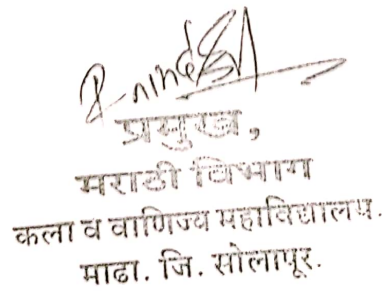 प्रमुख,
मराठी विभाग
कला व वाणिज्य महाविद्यालय.
माढा. जि. सोलापूर.